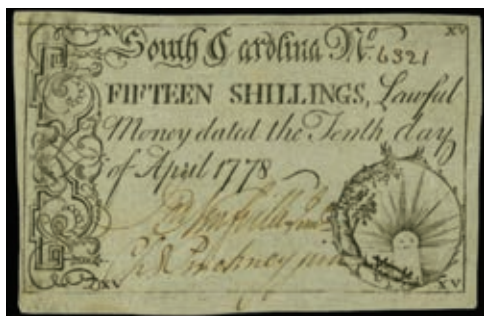 XV XV
South Carolina No. 6321
FIFTEEN SHILLINGS, Lawful
Money dated the Tenth day
of April 1778
Pinckney
XV XV